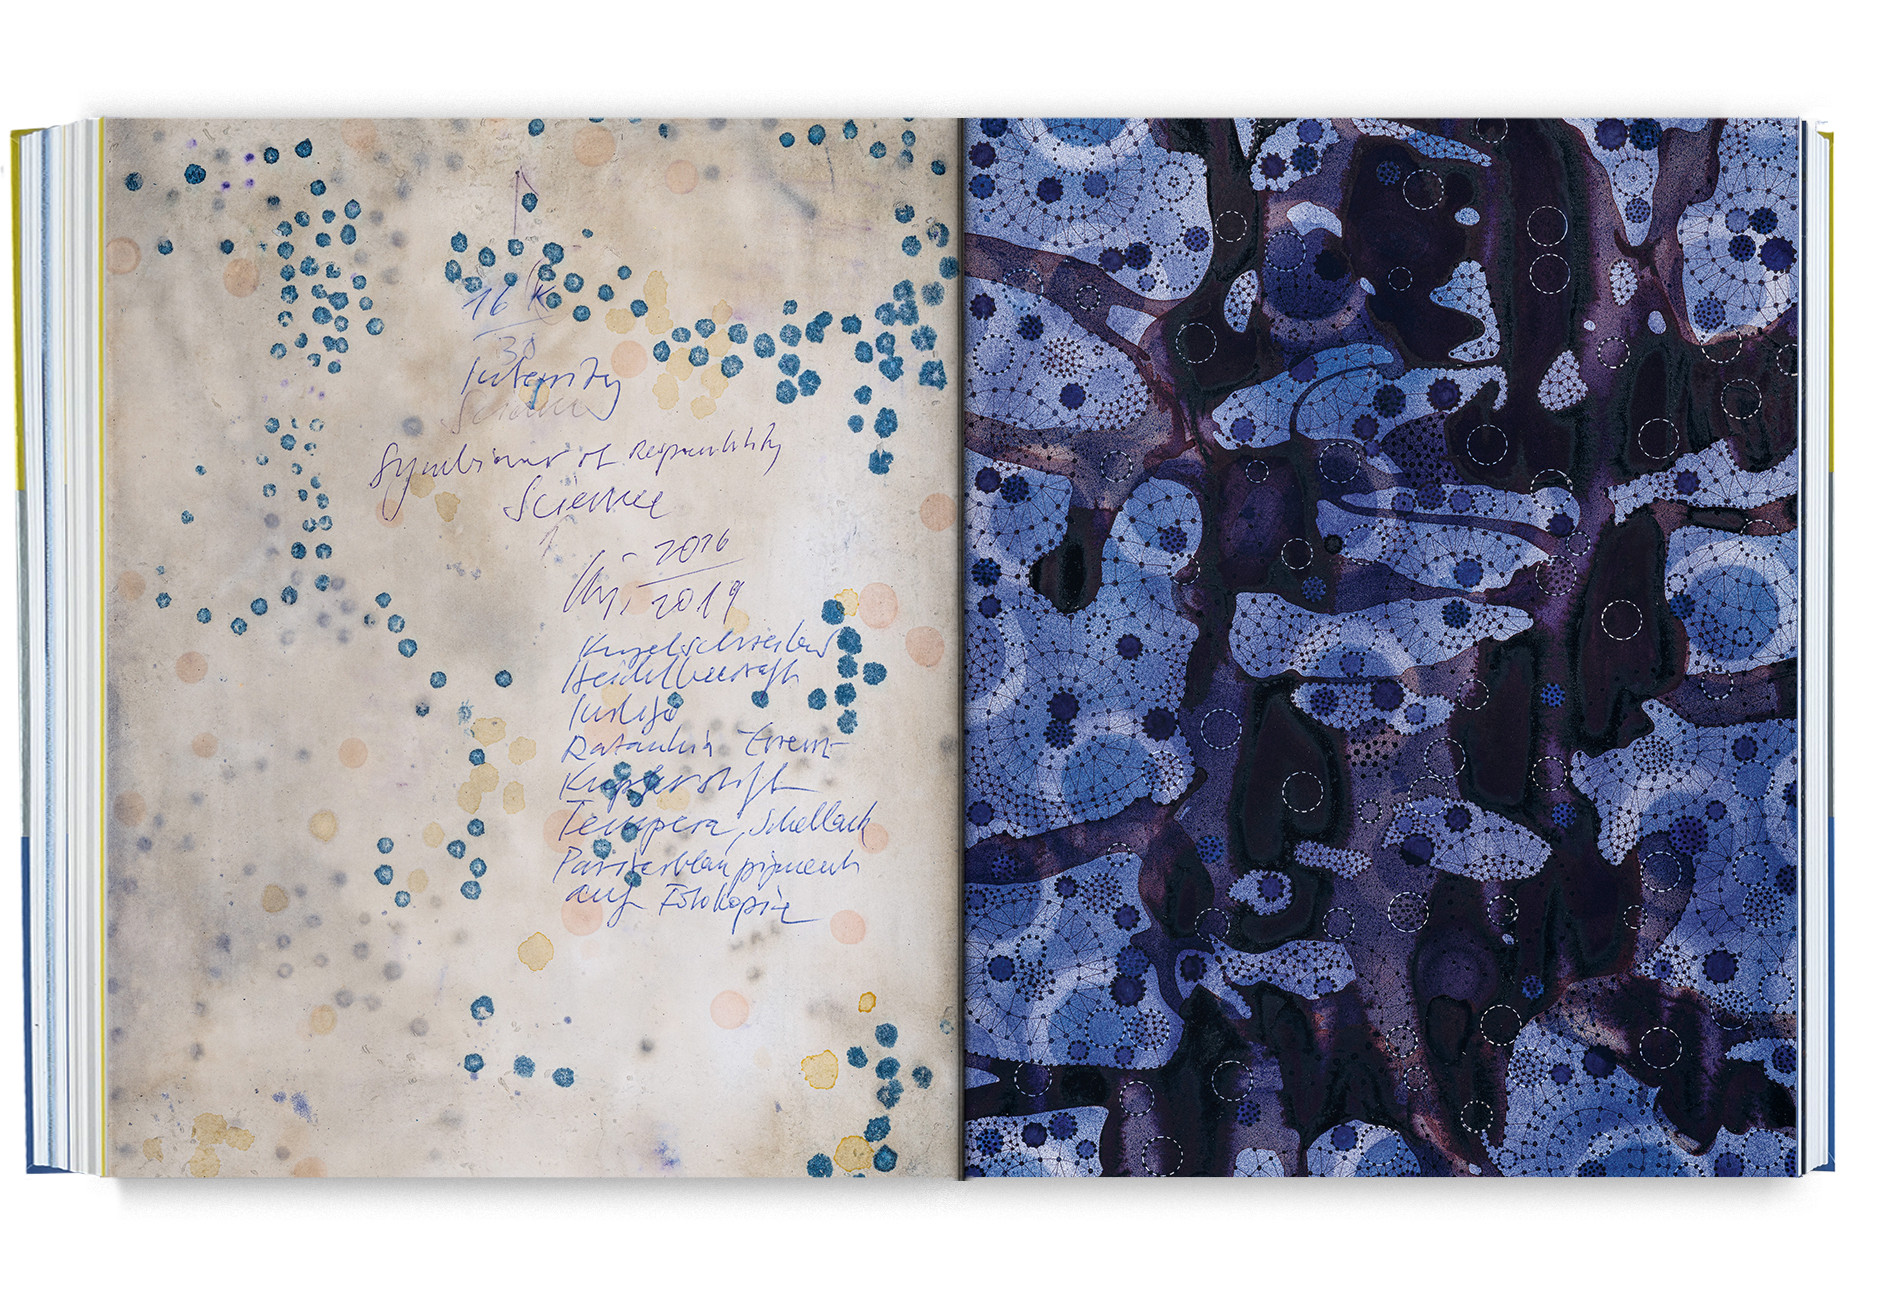 16 K
30
Intensity
Science
Symbioses of Responsibility
Science
2016
2019
Kugelschreiber
Heidelbeersaft
Indigo
Ratanhia
Kupferstift
Tempera, Schellack
Pariserblau pigment
auf Fotokopie